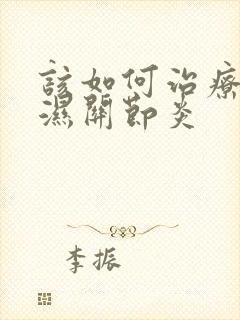 該如何治療
濕關節炎
李振